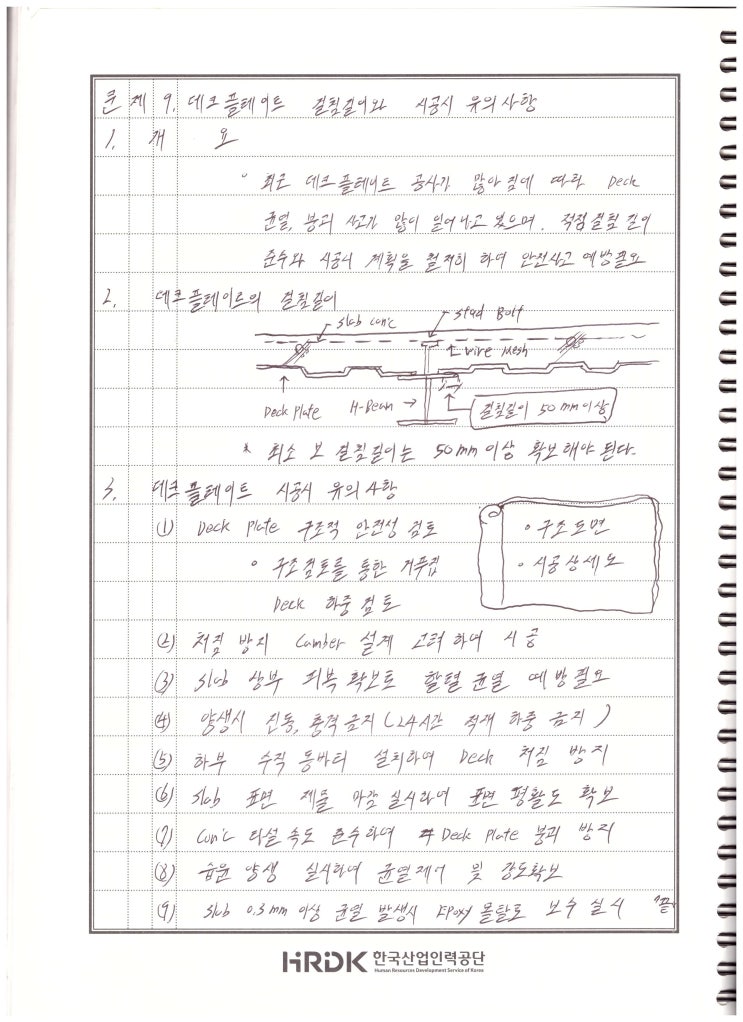 문제 9. 데크플레이트 걸침길이와 시공시 유의사항
1. 개 요
◦ 최근 데크플레이트 공사가 많아 짐에 따라 Deck
균열, 붕괴 사고가 많이 일어나고 있으며, 적정걸침 길이
준수와 시공시 계획을 철저히 하여 안전사고 예방필요
2. 데크플레이트의 걸침길이
Slab con'c
Stud Bolt
Wire Mesh
Deck Plate
H-Beam
걸침길이 50mm이상
* 최소 보 걸침길이는 50mm이상 확보해야 된다.
3. 데크플레이트 시공시 유의사항
① Deck Plate 구조적 안전성 검토
◦ 구조도면
◦ 구조검토를 통한 거푸집
◦ 시공상세도
Deck 하중 검토
② 처짐 방지 Camber 설계 고려 하여 시공
③ Slab 상부 피복 확보로 할렬 균열 예방필요
④ 양생시 진동, 충격금지 (24시간 적재 하중 금지)
⑤ 하부 수직 동바리 설치하여 Deck 처짐 방지
⑥ Slab 표면 제물 마감 실시하여 표면 평활도 확보
⑦ Con'c 타설 속도 준수하여 Deck Plate 붕괴 방지
⑧ 습윤 양생 실시하여 균열제어 및 강도확보
⑨ Slab 0.3mm 이상 균열 발생시 Epoxy 몰탈로 보수 실시 "끝"
HRDK 한국산업인력공단
Human Resources Development Service of Korea